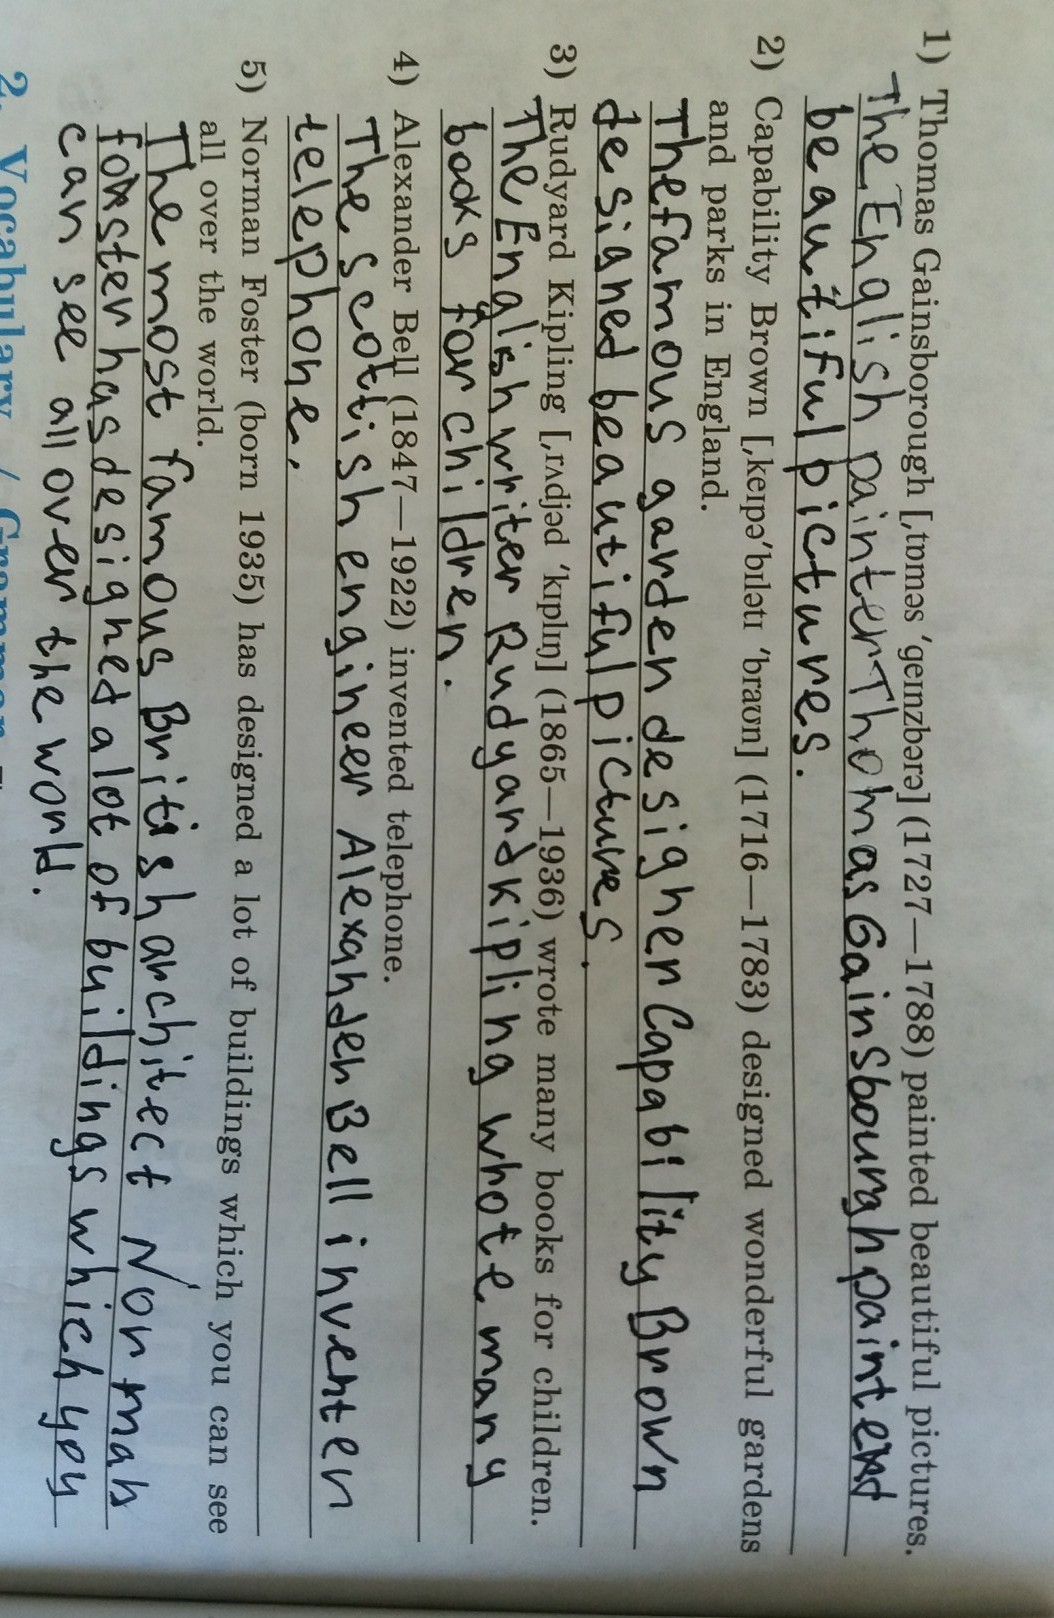 1) Thomas Gainsborough [ˌtɒməs ˈɡeɪnzbərə] (1727—1788) painted beautiful pictures.
The English painter Thomas Gainsbourgh painted
beautiful pictures.
2) Capability Brown [ˌkeɪpəˈbɪlətɪ ˈbraʊn] (1716—1783) designed wonderful gardens
and parks in England.
The famous garden designer Capability Brown
designed beautiful pictures.
3) Rudyard Kipling [ˌrʌdjəd ˈkɪplɪŋ] (1865—1936) wrote many books for children.
The English writer Rudyard Kipling whote many
books for children.
4) Alexander Bell (1847—1922) invented telephone.
The scottish engineer Alexander Bell inventer
telephone.
5) Norman Foster (born 1935) has designed a lot of buildings which you can see
all over the world.
The most famous British architect Norman
foster has designed a lot of buildings which you
can see all over the world.
2. Vocabulary / Grammar